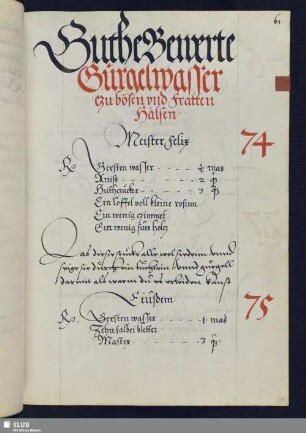 61
Guthe Bewerte
Gürgelwasser
czu bösen vnd Fratten
Hälsen
Meister Felix
74
Rx Gersten wasser - - - - ½ mas
Anisß - - - - 2
Huthczucker - - - - 3
Ein löffel voll kleine rosinn
Ein wenig czimmet
Ein wenig sües holcz
Las diesse stücke alle wol siedenn vnnd
seige sie durch ein tüchlein vnnd gürgell
darum als warm du es erleiden kanst
Eiusdem
75
Rx Gersten wasser - - - - 1 mas
Zehn salbei bletter
Mastix - - - - 3
SLUB
Wir führen Wissen.